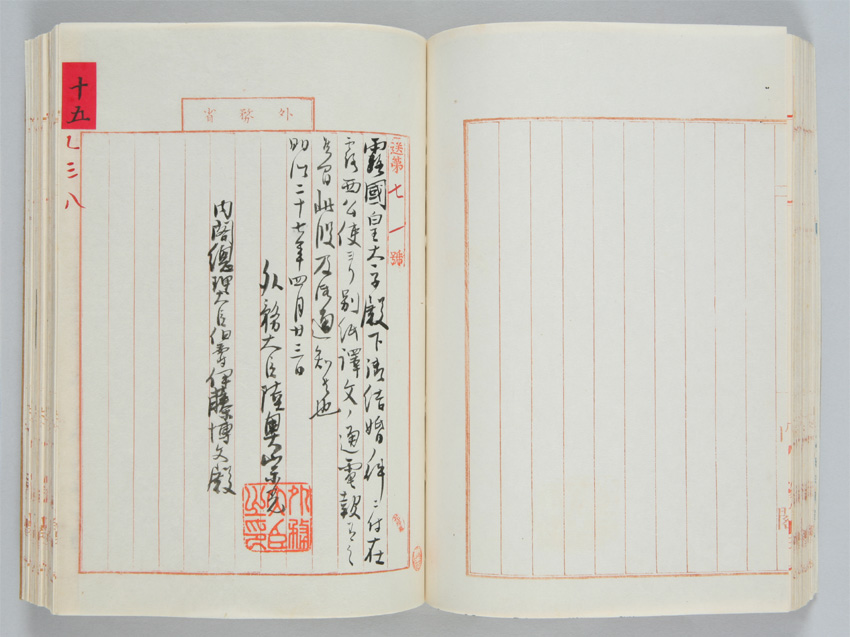 十五
乙三八
外務省
送第七一號
露國皇太子殿下御結婚ノ件ニ付在
露西公使ヨリ別紙譯文ノ通電報有之
候間此段及御通知候也
明治二十七年四月廿三日
外務大臣陸奥宗光
外務大臣之印
内閣總理大臣伯爵伊藤博文殿